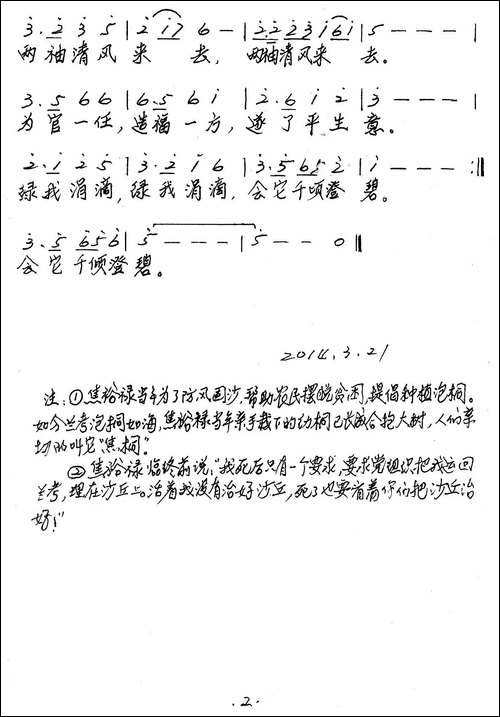 3̇. 2̇ 3̇ 5̇ | 2̇ i7 6 - | 2̇. 2̇ 2̇ 3̇ i6i | 5 - - - |
两袖清风来 去， 两袖清风来 去。
3. 5 6 6 | 6. 5 6 i | 2̇. 6 i 2̇ | 3̇ - - - |
为官一任，造福一方，遂了平生 意。
2̇. i 2̇ 5̇ | 3̇. 2̇ i 6 | 3̇. 5̇ 6̇5̇ 2̇ | i - - - :‖
绿我涓滴，绿我涓滴，会它千顷澄 碧。
3̇. 5̇ 6̇5̇ 6̇ | 5̇ - - - | 5̇ - - 0 ‖
会它千顷澄碧。
2014.3.21
注：①焦裕禄当年为了防风固沙，帮助农民摆脱贫困，提倡种植泡桐。
如今兰考泡桐如海，焦裕禄当年亲手栽下的幼桐已长成合抱大树，人们亲
切的叫它“焦桐”
②焦裕禄临终前说：“我死后只有一个要求，要求党组织把我运回
兰考，埋在沙丘上。活着我没有治好沙丘，死了也要看着你们把沙丘治
好！”
.2.